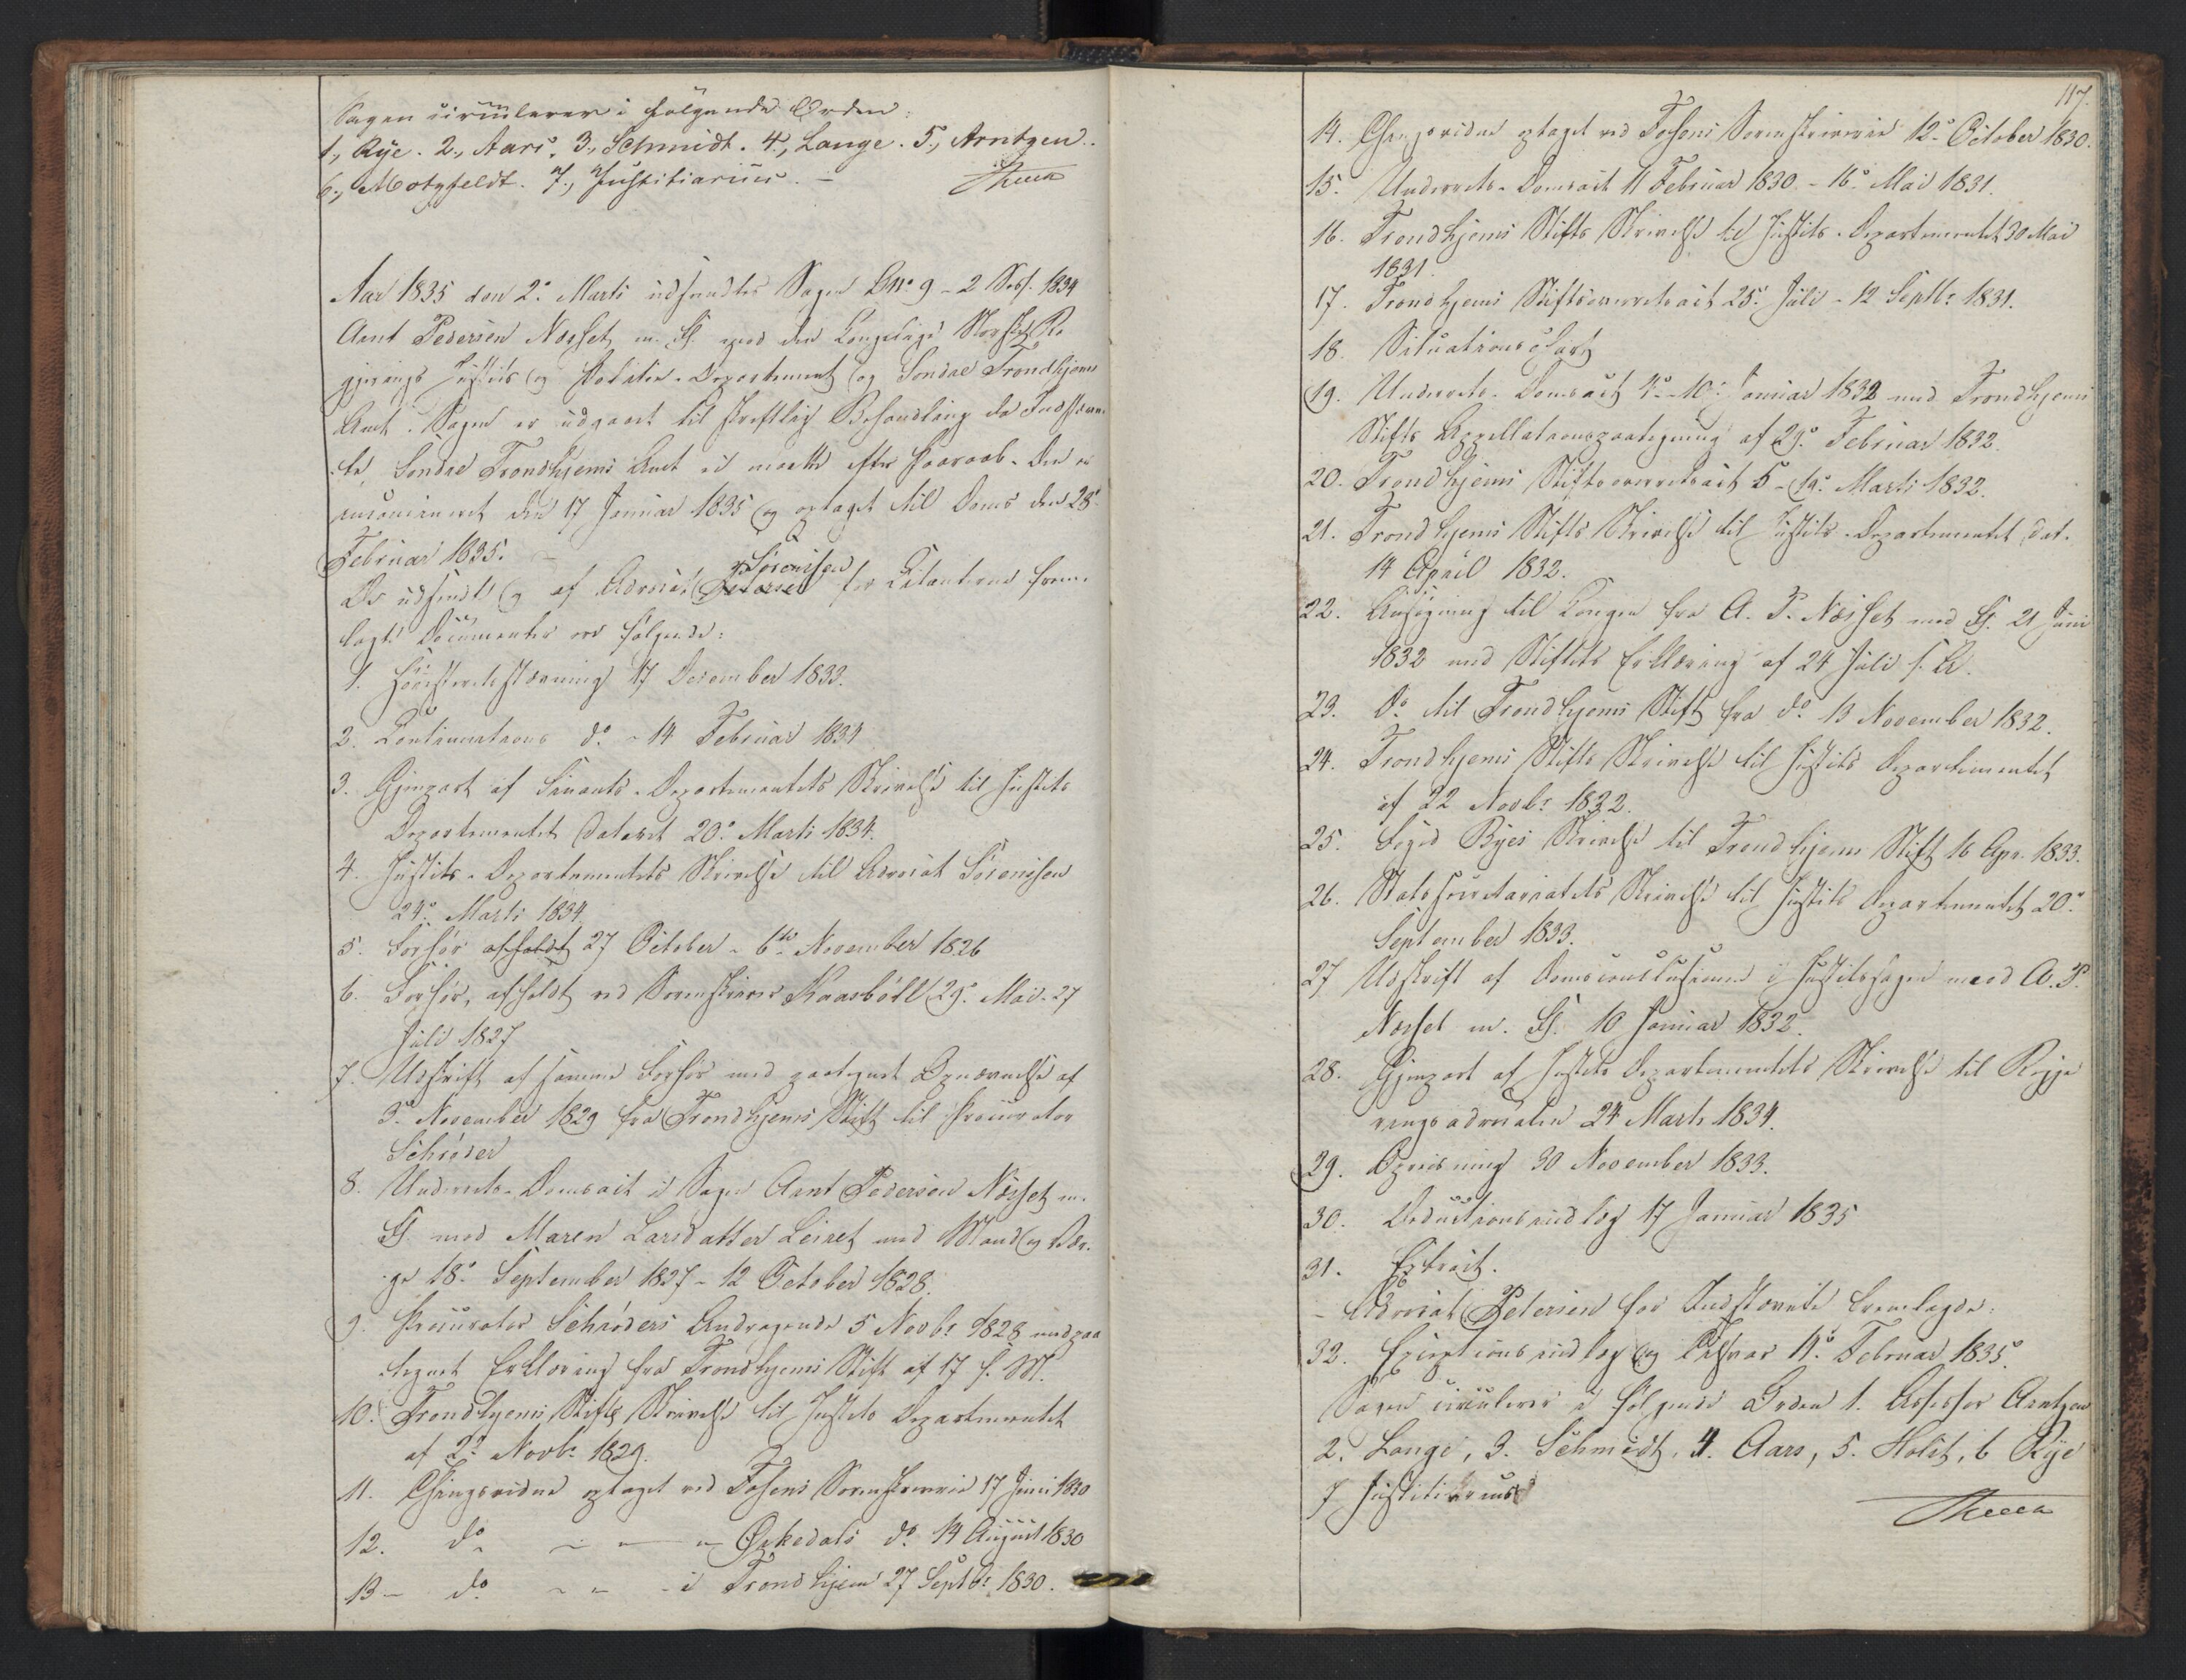 Sagen circulerer i følgende Orden:
1., Rye. 2., Aars. 3., Schmidt. 4., Lange. 5., Arntzen.
6., Motzfeldt. 7., Justitiarius. –
Aar 1835 den 2den Marti udsendtes Sagen L No 9 – 2 Sess. 1834
Arnt Pedersen Næsset m. fl. mod den Kongelige Norske Re
gjerings Justits og Politie-Departement og Søndre Trondhjems
Amt. Sagen er udgaaet til skriftlig Behandling da Indstævn
te, Søndre Trondhjems Amt ei mødte efter Paaraab. Den er
den 17 Januar 1835 og optaget til Doms den 28.
Februar 1835. –
De udsendte og af Advocat Petersen Sörensen for Citanterne frem-
lagte Documenter ere følgende:
1. Høiesteretsstævning 17 December 1833.
2. Continuations do – 14 Februar 1834
3. Gjenpart af Finants-Departementets Skrivelse til Justits
Departementet dateret 20. Marti 1834.
4. Justits-Departementets Skrivelse til Advocat Sörensen
24. Marti 1834.
5. Forhör afholdt 27 October – 6te November 1826
6. Forhör, afholdt ved Sorenskriver Kaasböll 29. Mai – 27
Juli 1827
7. Udskrift af samme Forhör med paategnet Opnævnelse af
3. November 1829 fra Trondhjems Stift til Procurator
Schröder
8. Underrets-Domsact i Sagen Arnt Pedersen Næsset m.
fl. mod Maren Larsdatter Leiret med Mand og Vær-
ge 18. September 1827 – 12 October 1828.
9. Procurator Schröders Andragende 5 Novbr 1828 med paa
tegnet Erklæring fra Trondhjems Stift af 17 s. M.
10. Trondhjems Stifts Skrivelse til Justits Departementet
af 2. Novbr 1829.
11. Thingsvidne optaget ved Fosens Sorenskriverie 17 Juni 1830
12. do – – – Örkedals do 14 August 1830
13 – do – – – i Trondhjem 27 Septbr 1830.
117.
14. Thingsvidne optaget ved Fosens Sorenskriverie 12. October 1830.
15. Underrets-Domsact 11 Februar 1830 – 16. Mai 1831.
16. Trondhjems Stifts Skrivelse til Justits-Departementet 30 Mai
1831.
17. Trondhjems Stiftsoverretsact 25. Juli – 12 Septbr 1831.
18. Situationscart
19. Underrets-Domsact – 10. Januar 1832 med Trondhjems
Stifts Appellationspaategning af 29. Februar 1832.
20. Trondhjems Stiftsoverretsact 5 – 19. Marti 1832.
21. Trondhjems Stifts Skrivelse til Justits-Departementet dat.
14 April 1832.
22. Ansøgning til Kongen fra A. P. Næsset med fl. 21 Juni
1832 med Stiftets Erklæring af 24 Juli s. A.
23. Do til Trondhjems Stift fra do 13 November 1832.
24. Trondhjems Stifts Skrivelse til Justits Departementet
af 22 Novbr 1832.
25. Foged Ryes Skrivelse til Trondhjems Stift 16 Apr. 1833.
26. Statssecretariatets Skrivelse til Justits Departementet 20.
September 1833.
27 Udskrift af Domsconclusionen i Justitssagen mod A. P.
Næsset m. fl. 10 Januar 1832.
28. Gjenpart af Justits Departementets Skrivelse til Regje
ringsadvocaten 24 Marti 1834.
29. 30 November 1833.
30. Deductionsindlæg 17 Januar 1835
31. Extract.
– Advocat Petersen for Indstævnte fremlagde:
32. Exceptionsindlæg og Tilsvar 11. Februar 1835.
Sagen circulerer i følgende Orden 1. Assessor Arntzen
2. Lange, 3. Schmidt, 4. Aars, 5. Holst, 6 Rye
7 Justitiarius